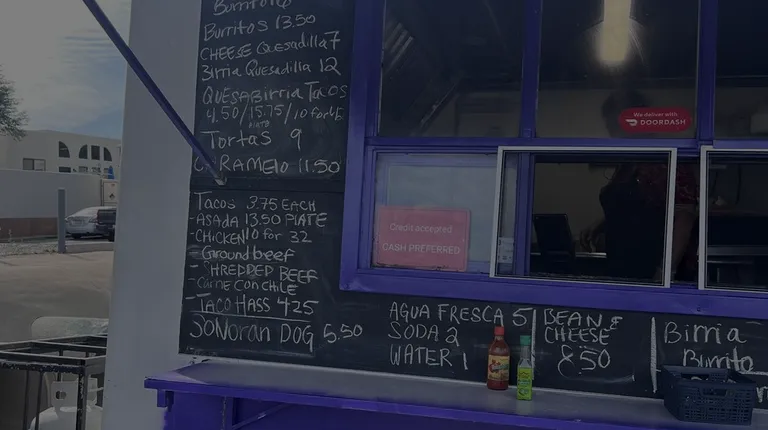 Burritos 13.50
CHEESE Quesadilla 7
Birria Quesadilla 12
QUESABirria Tacos
4.50/15.75/10 for 45
PLATE
Tortas 9
CARAMELO 11.50
Tacos 3.75 EACH
-ASADA 13.50 PLATE
-CHICKEN 10 for 32
-Ground beef
-SHREDDED BEEF
Carne CON CHILE
-TACO HASS 4.25
SONORAN DOG 5.50
AGUA FRESCA 5
SODA 2
WATER 1
BEAN &
CHEESE
8.50
Birria
Burrito
We deliver with
DOORDASH
Credit accepted
CASH PREFERRED